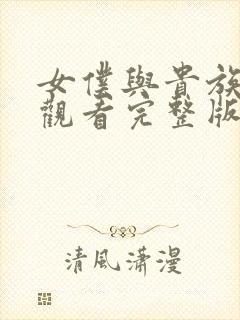 女僕與貴族
觀看完整版
清風瀟漫